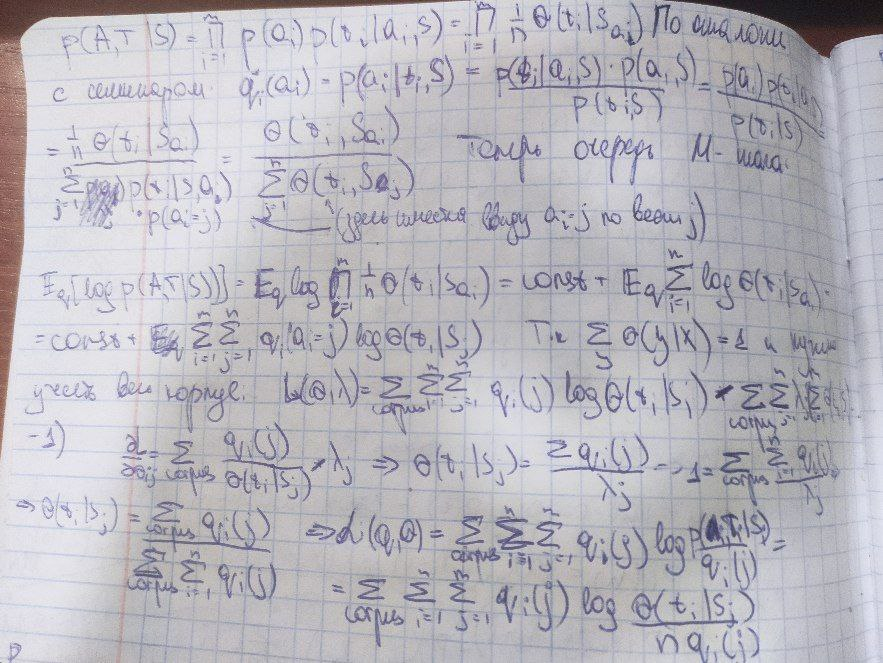 p(A,T|S) = ∏_{i=1}^{m} p(a_i) p(t_i|a_i,S) = ∏_{i=1}^{m} 1/n θ(t_i|S_{a_i}) По аналогии
с семинаром: q_i(a_i) = p(a_i|t_i,S) = p(t_i|a_i S)·p(a_i S) / p(t_i S) = p(a_i) p(t_i|a_i S) / p(t_i|S)
= 1/n θ(t_i|S_{a_i}) / ∑_{j=1}^{n} p(t_i|S,a_i) · p(a_i=j) = θ(t_i, S_{a_i}) / ∑_{j=1}^{n} θ(t_i, S_{a_j}) Теперь очередь М-шага.
(здесь имеется ввиду a_i=j по всем j)
E_q[log p(A,T|S)] = E_q log ∏_{i=1}^{m} 1/n θ(t_i|S_{a_i}) = const + E_q ∑_{i=1}^{m} log θ(t_i|S_{a_i}) =
= const + ∑_{i=1}^{m} ∑_{j=1}^{n} q_i(a_i=j) log θ(t_i|S_j) Т.к ∑_y θ(y|x) = 1 и нужно
учесть весь корпус: L(θ,λ) = ∑_{corpus} ∑_{i=1}^{m} ∑_{j=1}^{n} q_i(j) log θ(t_i|S_j) - ∑_{corpus}
-1) ∂L/∂θ_{ij} = ∑_{corpus} q_i(j) / θ(t_i|S_j) - λ_j ⇒ θ(t_i|S_j) = ∑ q_i(j) / λ_j ⇒ 1 = ∑_{corpus} ∑_{i=1}^{m} q_i(j) / λ_j
⇒ θ(t_i|S_j) = ∑_{corpus} q_i(j) / ∑_{corpus} ∑_{i=1}^{m} q_i(j) ⇒ L(q,θ) = ∑_{corpus} ∑_{i=1}^{m} ∑_{j=1}^{n} q_i(j) log / q_i(j) =
= ∑_{corpus} ∑_{i=1}^{m} ∑_{j=1}^{n} q_i(j) log θ(t_i|S_j) / n q_i(j)